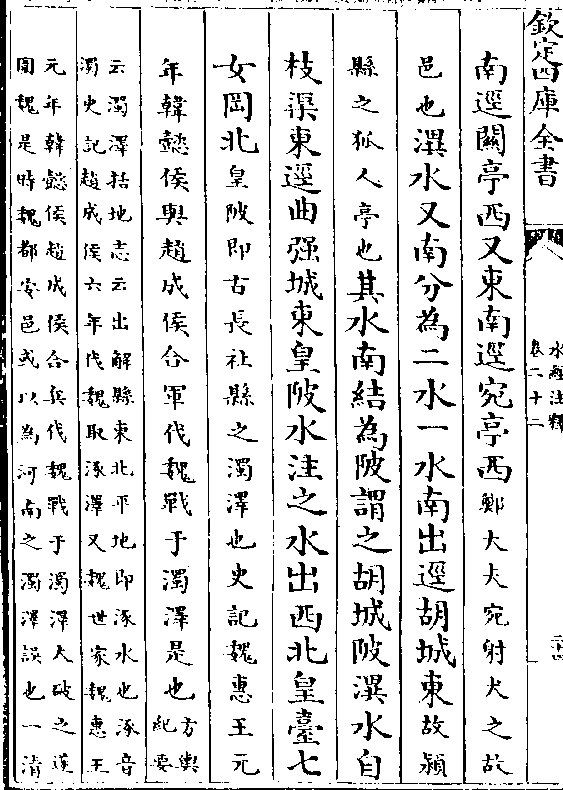 欽定四庫全書
水經注釋
卷二十二
南逕闗亭西又東南逕宛亭西鄭大夫宛射犬之故
邑也潩水又南分為二水一水南出逕胡城東故潁
縣之狐人亭也其水南結為陂謂之胡城陂潩水自
枝渠東逕曲强城東皇陂水注之水出西北皇臺七
女岡北皇陂即古長社縣之濁澤也史記魏惠王元
年韓懿侯與趙成侯合軍伐魏戰于濁澤是也
方輿
紀要
云濁澤括地志云出解縣東北平地即涿水也涿音
濁史記趙成侯六年伐魏取涿澤又魏世家魏惠王
元年韓懿侯趙成侯合兵伐魏戰于濁澤大破之遂
圍魏是時魏都安邑或以為河南之濁澤誤也一清